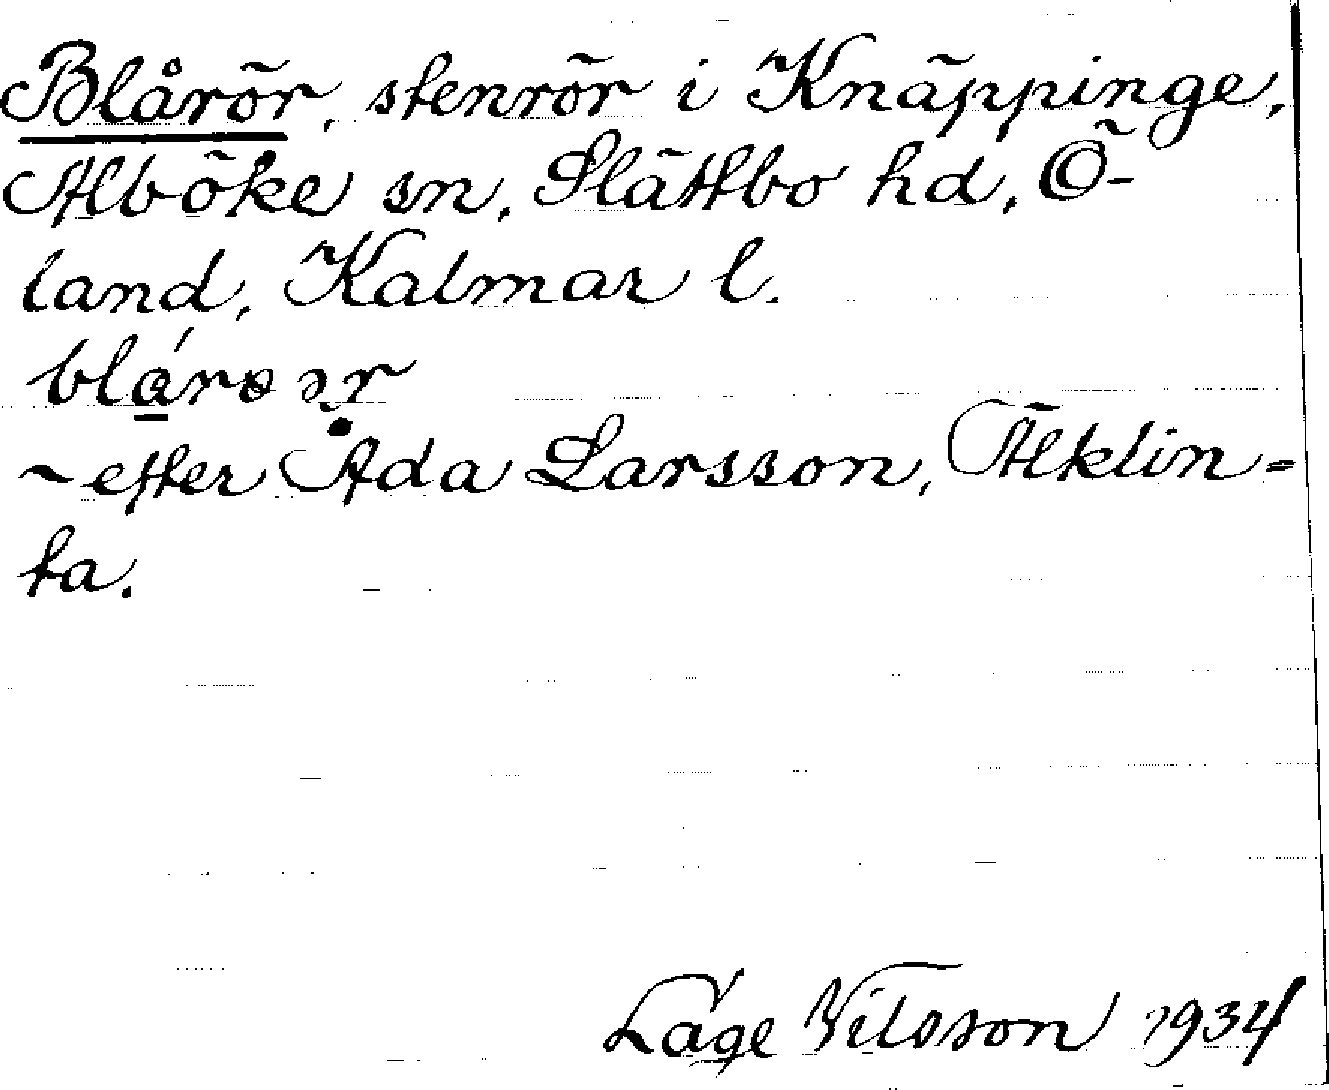 Blårör, stenrör i Knäppinge,
Alböke sn, Slättbo hd, Ö-
land, Kalmar l.
~ efter Ada Larsson, Äleklin-
ta.
Låge Nilsson 1934